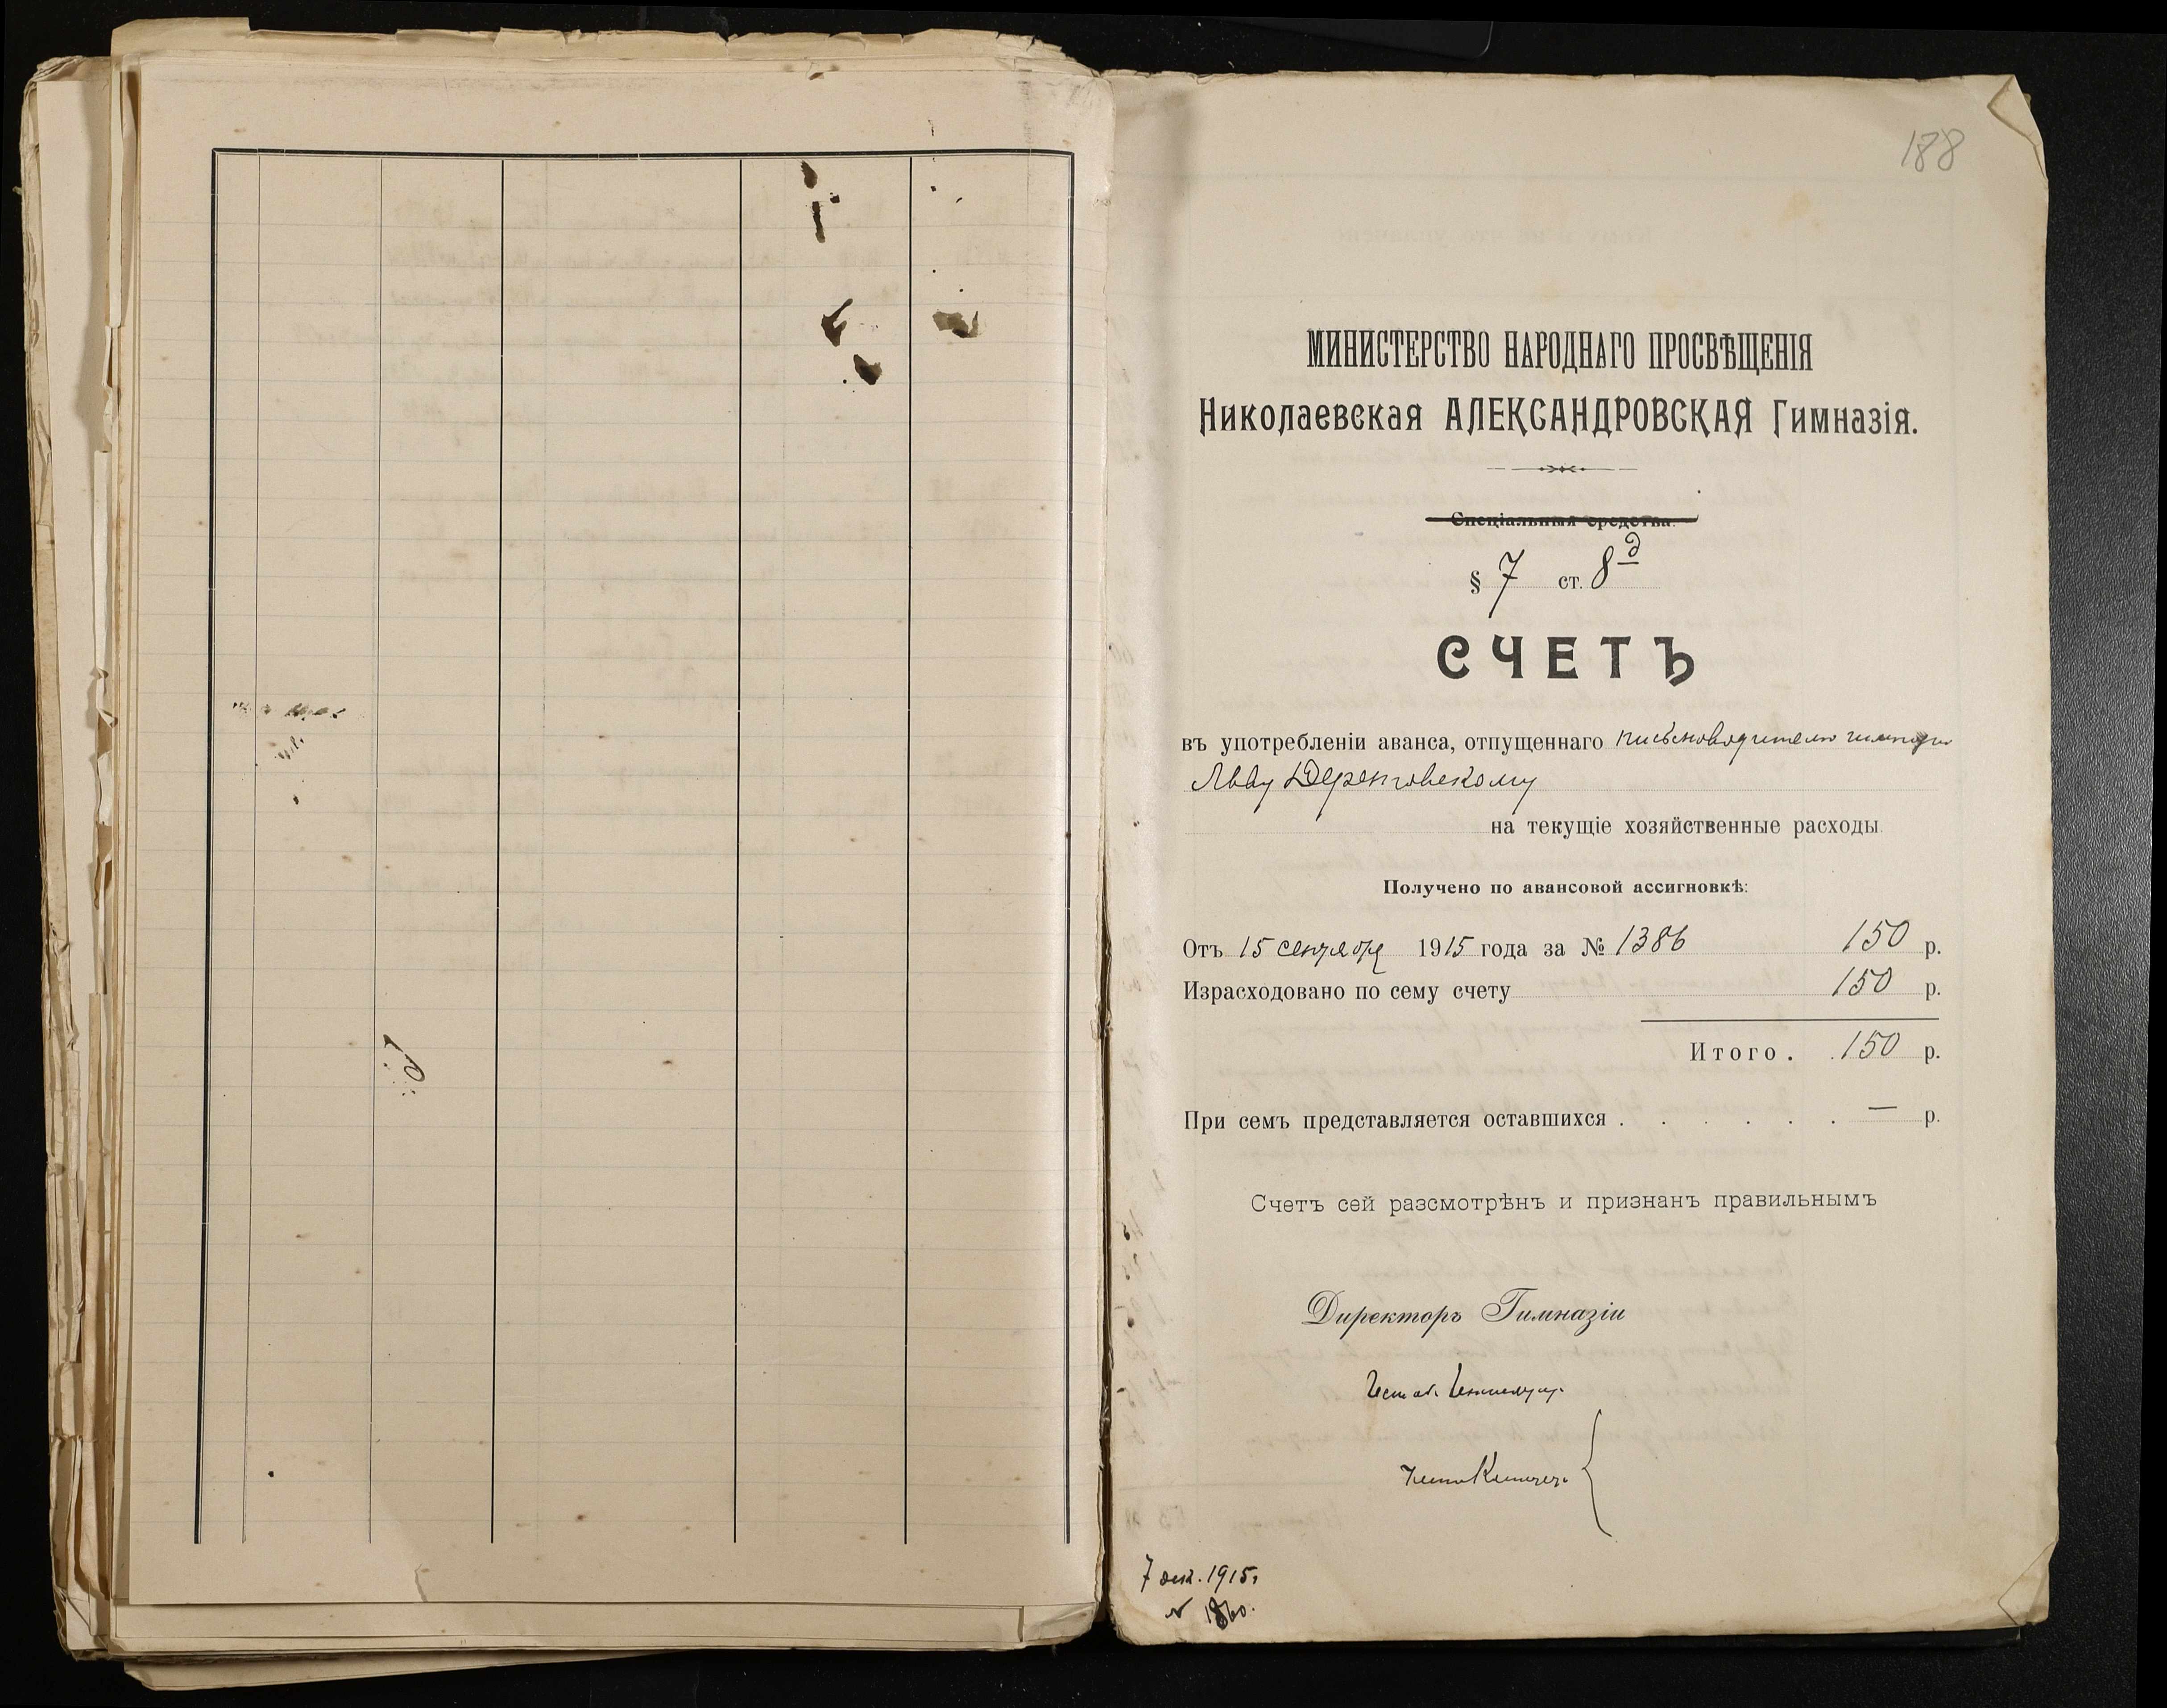 188
МИНИСТЕРСТВО НАРОДНАГО ПРОСВѢЩЕНІЯ
Николаевская АЛЕКСАНДРОВСКАЯ Гимназія.
Спеціальныя средства.
§ 7 ст. 8 д
СЧЕТЪ
въ употребленіи аванса, отпущеннаго письмоводителю гимназіи
Льву
на текущіе хозяйственные расходы
Получено по авансовой ассигновкѣ:
Отъ 15 сентября 1915 года за № 1386 150 р.
Израсходовано по сему счету 150 р.
Итого. 150 р.
При семъ представляется оставшихся . . . . . . — р.
Счетъ сей разсмотрѣнъ и признанъ правильнымъ
Директоръ Гимназіи
7 дек. 1915 г.